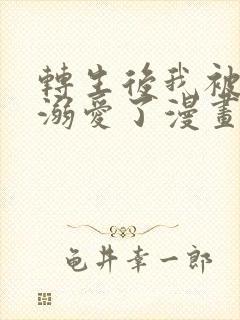 轉生後我被
溺愛了漫畫
龟井幸一郎